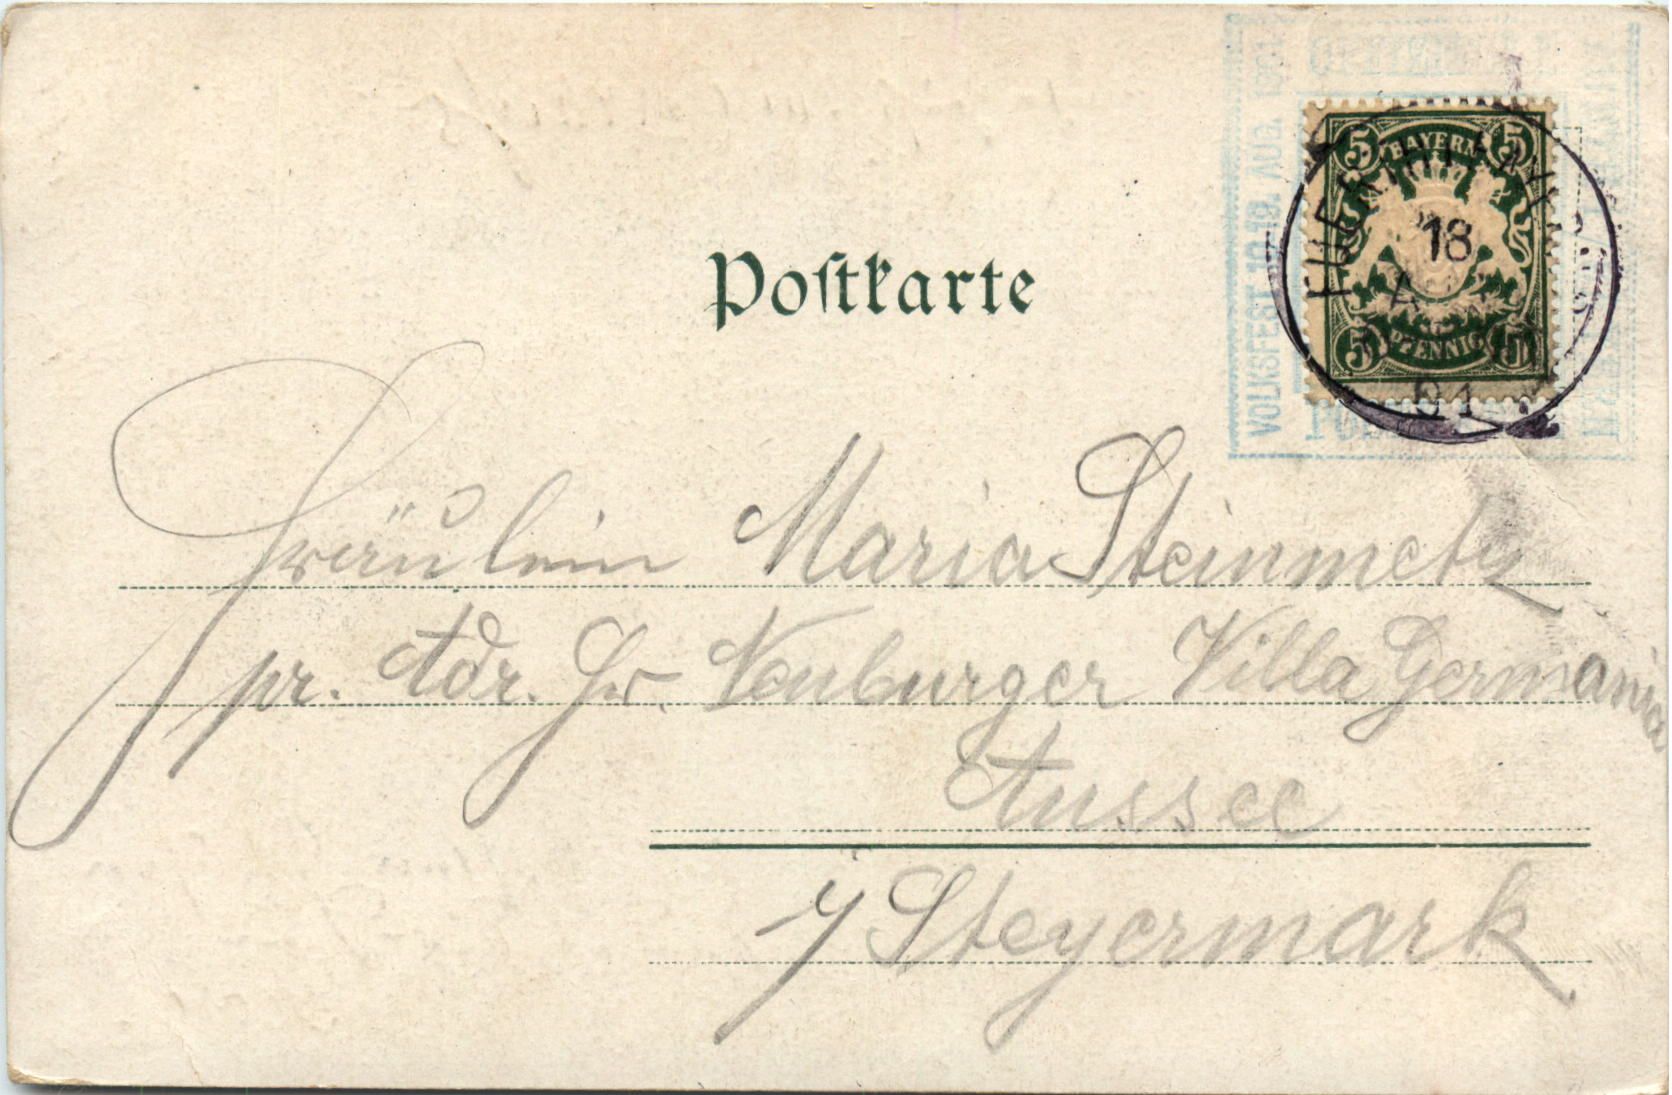 VOLKSFEST 18.19. AUG. 1901
5 BAYERN 5
5 PFENNIG 5
18
01
Postkarte
Fräulein Maria Steinmetz
pr. Adr. Hr. Neuburger Villa Germania
Aussee
i/ Steyermark